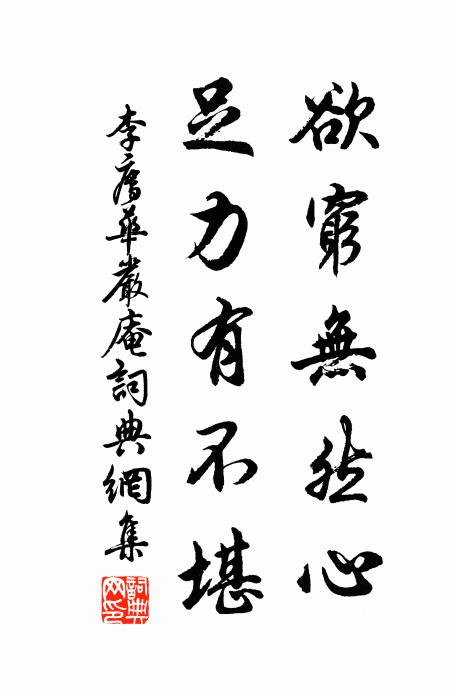 欲窮無然心
足力有不堪
李廌華嚴庵詞典網集
詞典网印